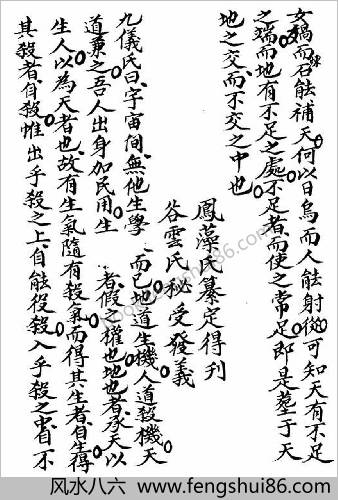 女媧而煉石能補天何以日烏而人能射從可知天有不足
之端而地有不足之處不足者而使之常足即是塟于天
地之交而不交之中也
鳳藻氏纂定得刋
谷雲氏秘受發義
九儀氏曰宇宙間無他生學而已地道生機人道殺機天
道兼之吾人出身加民用生者假之權也地也者承天以
生人以為天者也故有生氣隨有殺氣而得其生者自生得
其殺者自殺惟出乎殺之上自能役殺入乎殺之中自不
风水八六 www.fengshui86.com